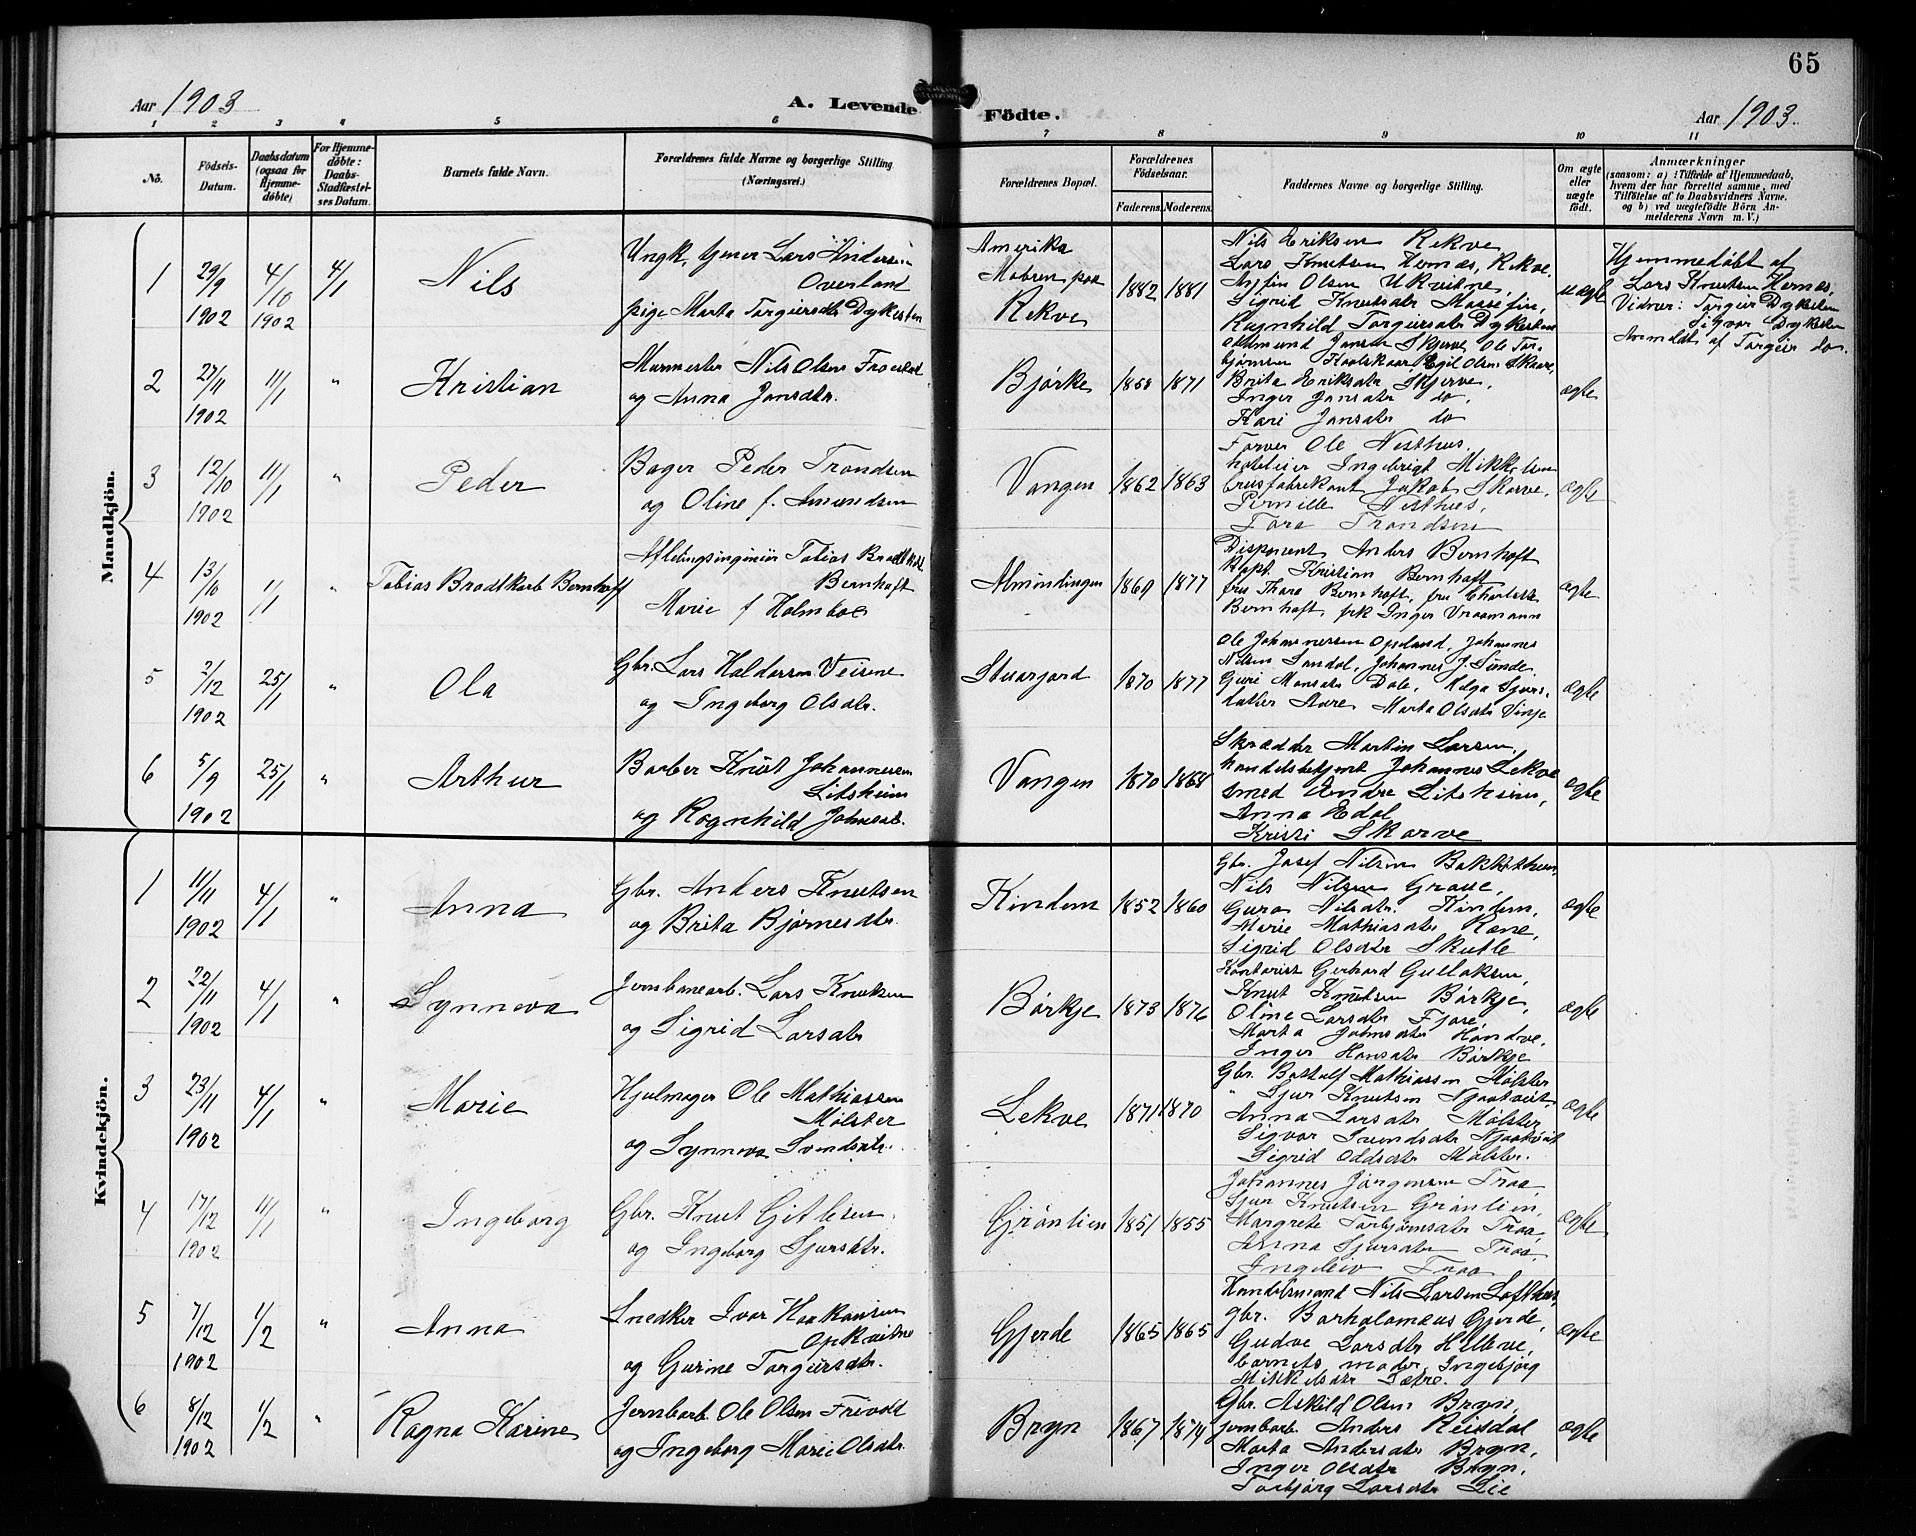 65
Aar 1903
A. Levende
Födte.
Aar 1903.
1 2 3 4 5 6 7 8 9 10 11
No.
Födsels-Datum.
Daabsdatum (ogsaa for Hjemmedöbte)
For Hjemmedöbte: Daabs-Stadfæstelses Datum.
Barnets fulde Navn.
Forældrenes fulde Navne og borgerlige Stilling (Næringsvei.)
Forældrenes Bopæl.
Forældrenes Födselsaar.
Faderens. Moderens.
Faddernes Navne og borgerlige Stilling.
Om ægte eller uægte födt.
Anmærkninger
(saasom: a) i Tilfælde af Hjemmedaab, hvem der har forrettet samme, med Tilföielse af to Daabsvidners Navne, og b) ved uægtefödte Börn Anmelderens Navn m. V.)
Mandkjön.
1 29/9 1902 4/10 1902 4/1 Nils
Ungk. tjener Lars Andersen
Overland
pige Marta Torgiersdtr Dykesten
Amerika
Rekve
1882 1881
Nils Eriksen Rekve
Lars Knutsen Hernæs, Rekve.
Arfin Olsen Ukvitne,
Sigrid Knutsdtr
Ragnhild Torgiersdtr Dykesten
uægte
Hjemmedöbt af
Lars Knutsen Hernæs,
Vidner: Torgier Dykesten
Sigvor Dykesten
Anmeldt af Torgier do.
2 27/11 1902 11/1 " Kristian
Murmester Nils Olsen
og Anna Jonsdtr.
Björke 1868 1871
Jonsen Skjerve, Ole Tor-
björnsen Egil Olsen Skaar,
Brita Eriksdtr Skjerve,
Inger Jonsdtr do,
Kari Jonsdtr do
ægte
3 12/10 1902 11/1 " Peder
Bager Peder Trondsen
og Oline f. Amundsen
Vangen 1862 1863
Farver Ole Nesthus,
hoteleier Ingebrigt Mikkelsen
brusfabrikant Jakob Skorve,
Pernille Nesthus,
Tora Trondsen
ægte
4 13/10 1902 1/1 " Tobias Brodtkorb Bernhoff
Afdelingsingeniör Tobias Brodtkorb
Bernhoft
Marie f Holmboe
Almindingen 1869 1877
Disponent Anders Bernhoft
Kapt. Kristian Bernhoft
fru Thora Bernhoft, fru Charlotte
Bernhoft, frk Inger Vraamann
ægte
5 2/12 1902 25/1 " Ola
Gbr. Lars Haldorsen Veisene
og Ingeborg Olsdtr.
1870 1877
Ole Johannessen Opeland, Johannes
Nilsen Sandal, Johannes J. Sunde
Guri Monsdtr Dale, Helga Sjurs-
datter Aare Marta Olsdtr Vinje
ægte
6 5/9 1902 25/1 " Arthur
Barber Knut Johannesen
Litsheim
og Ragnhild Johnsdtr.
Vangen 1870 1868
Skrædder Martin Larsen,
handelsbetjent Johannes Lekve
smed Endre Litsheim,
Anna Edal
Kristi Skorve
ægte
Kvindekjön.
1 11/11 1902 4/1 " Anna
Gbr. Anders Knutsen
og Brita Björnesdtr.
Kindem 1852 1860
Gbr. Josef Nilsen
Nils Nilsen Grove,
Guro Nilsdtr. Kindem,
Marie Mathiasdtr Rene,
Sigrid Olsdtr Skutle
ægte
2 22/11 1902 4/1 " Synneva
Jernbanearb. Lars Knutsen
og Sigrid Larsdtr
Börkje 1873 1876
Kontorist Gerhard Gullaksen,
Knut Knutsen Börkje,
Oline Larsdtr Fjære,
Marta Johnsdtr Hondve,
Inger Hansdtr Börkje
ægte
3 23/11 1902 4/1 " Marie
Hjulmager Ole Mathiassen
Mölster
og Synneva Svendsdtr.
Lekve 1871 1870
Gbr. Botolf Mathiassen Mölster
" Sjur Knutsen
Anna Larsdtr Mölster
Sigvor Svendsdtr
Sigrid Oddsdtr Mölster.
ægte
4 17/12 1902 11/1 " Ingeborg
Gbr. Knut Gitlesen
og Ingeborg Sjursdtr.
Grönlien 1851 1855
Johannes Jörgensen Traa,
Sjur Knutsen Grönlien,
Margrete Torbjörnsdtr Traa,
Anna Sjursdtr Traa,
Ingeleiv Traa
ægte
5 7/12 1902 1/2 " Anna
Snedker Ivar Haakonsen
Opkvitne
og Gurine Torgiersdtr.
Gjerde 1865 1865
Handelsmand Nils Larsen Lofthus,
gbr. Barholomæus Gjerde,
Gudve Larsdtr Helleve,
barnets moder, Ingebjörg
Mikkelsdtr Sætre.
ægte
6 8/12 1902 1/2 " Ragna Karine
Jernbarb. Ole Olsen Trivolt
og Ingeborg Marie Olsdtr.
Bryn 1867 1874
Gbr. Askild Olsen Bryn,
jernbarb. Anders Reisdal
Marta Andersdtr Bryn,
Inger Olsdtr Bryn,
Torbjörg Larsdtr Lie
ægte